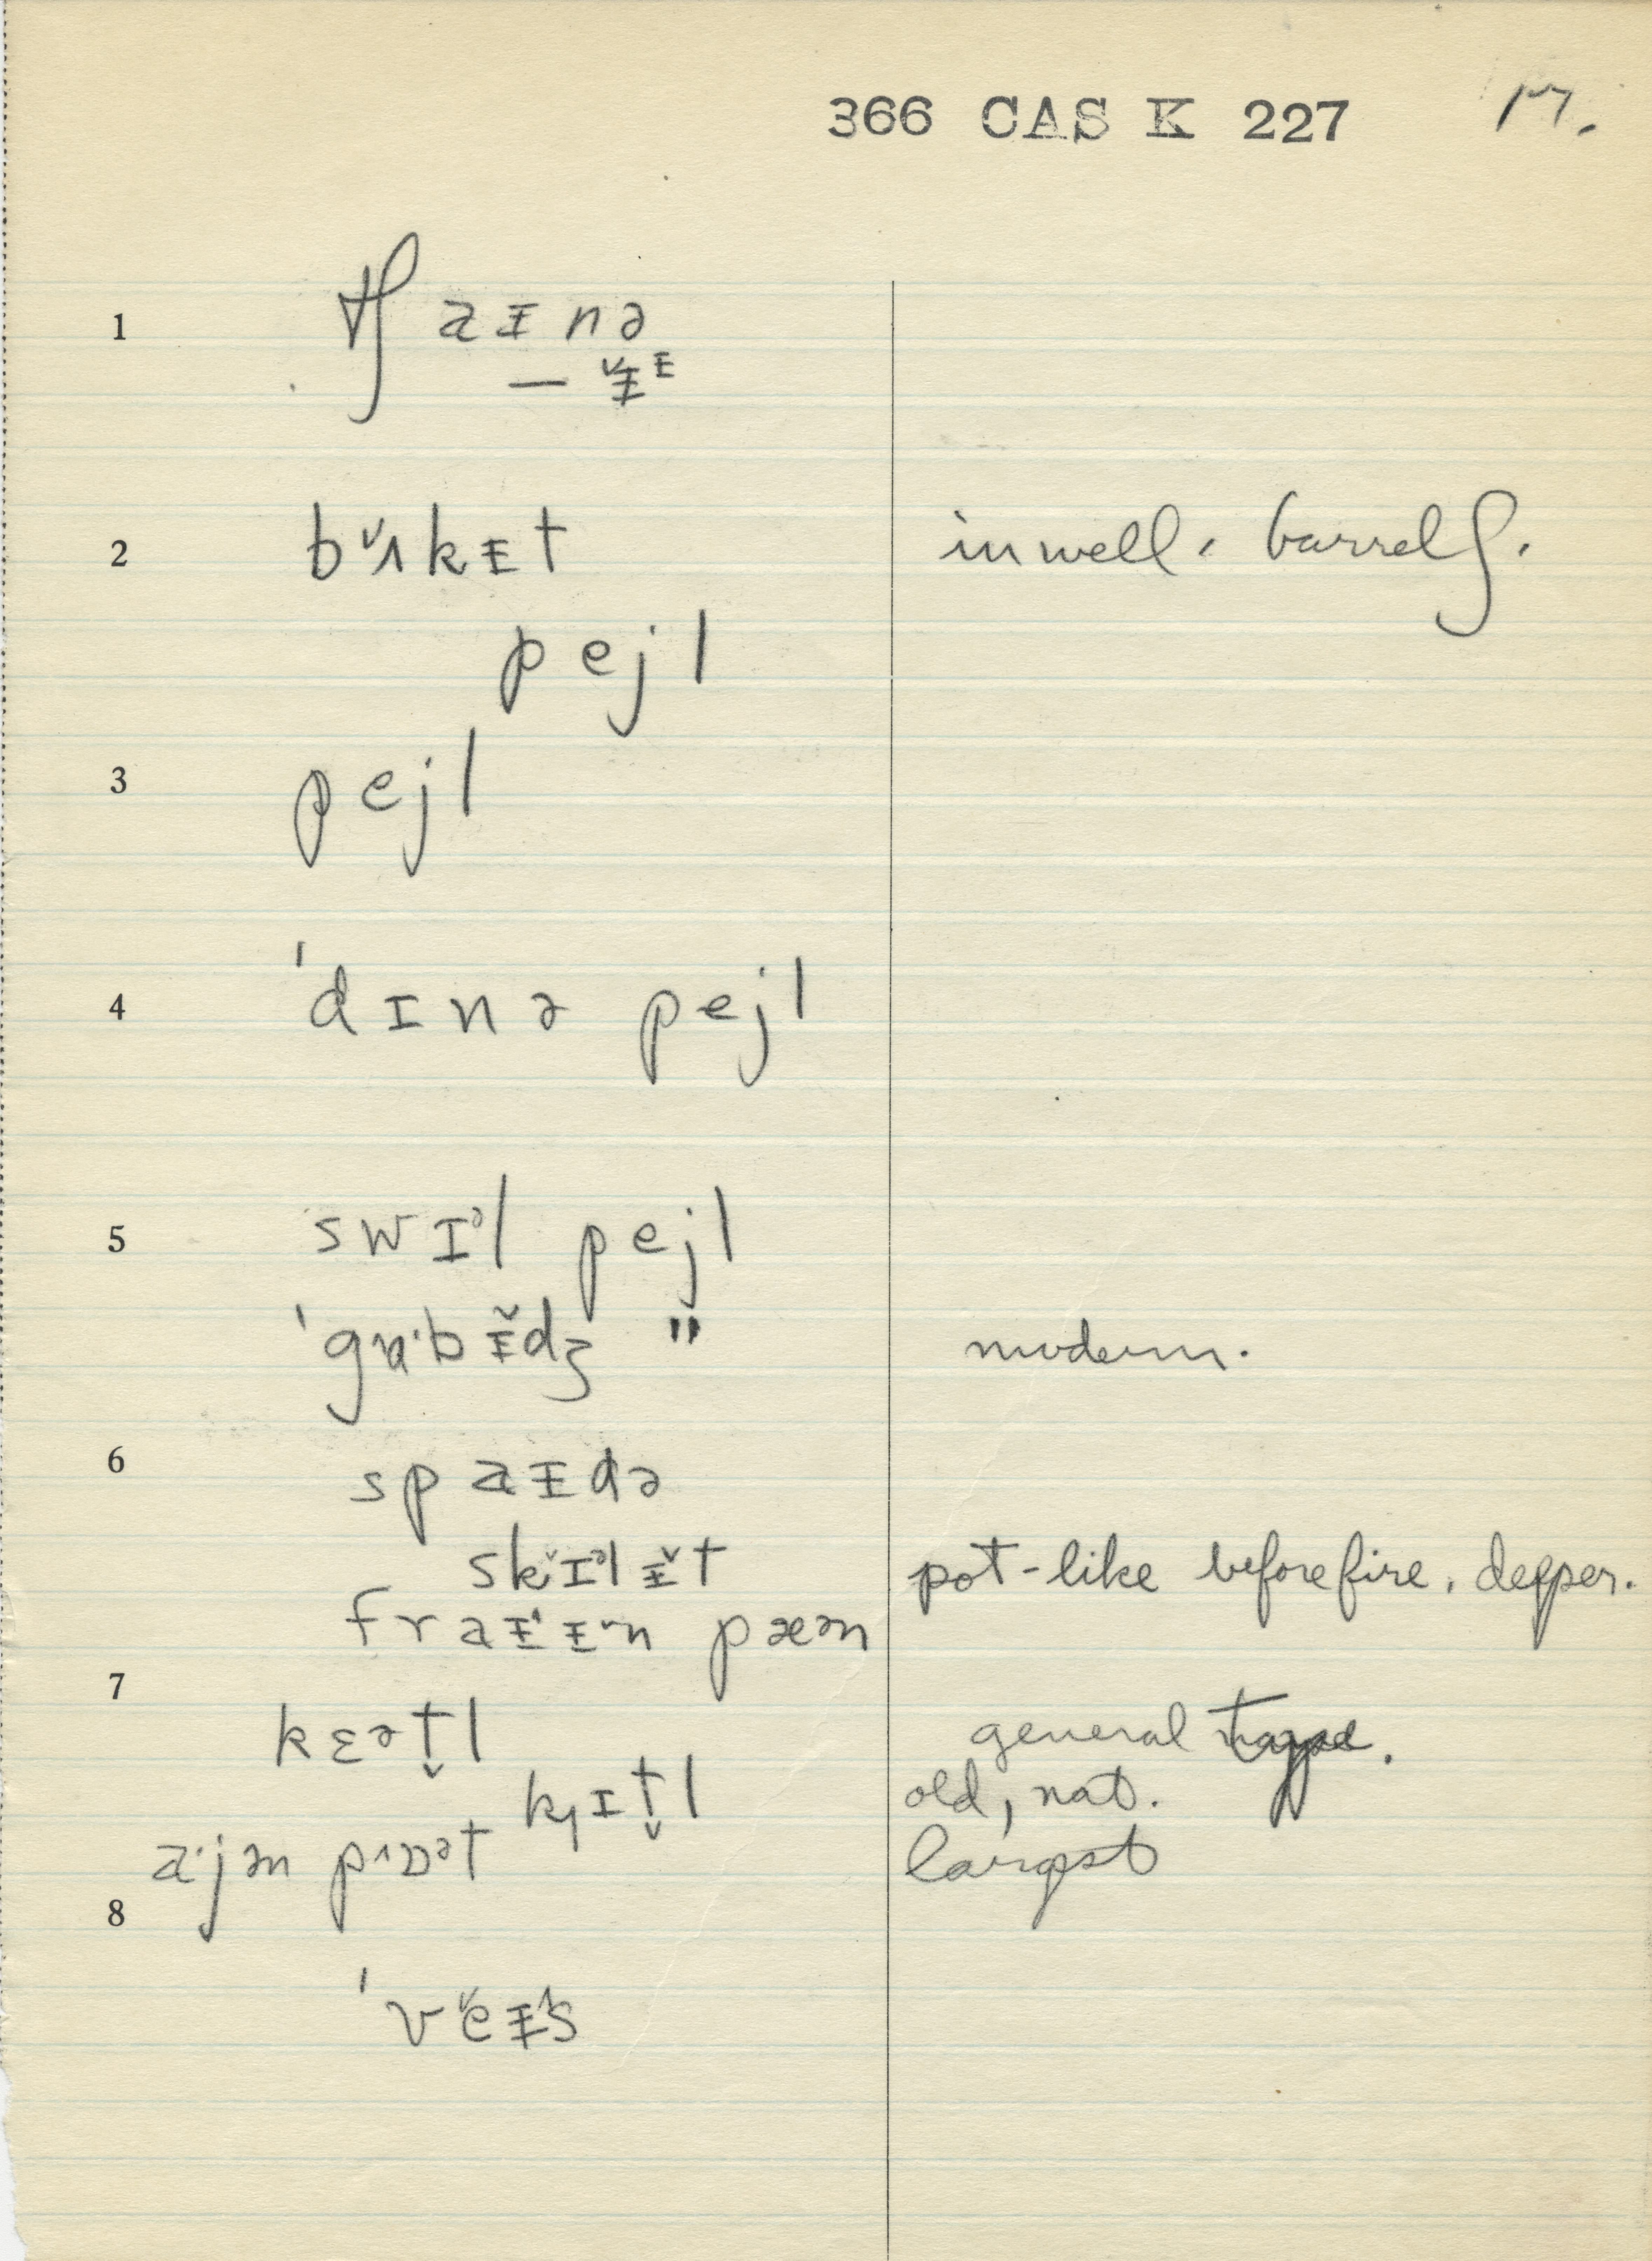 366 CAS K 227 17.
1 tʃ aᵻnə
— ᵻ̌ᴱ
2 bʌ̌kᵻt in well, barrels.
pejl
3 pejl
4 ˈdɪnə pejl
5 swɪᵊl pejl
ˈgɑˑbᵻ̌dʒ " modern.
6 spaᵻdə
skɪ̌ᵊlᵻ̌t pot-like before fire, deeper.
fraᵻᵻn pæən
7 kɛət̬l general
kɪt̬l old, nat.
aˑjən pɒᵊt largest
8 ˈvěᵻs